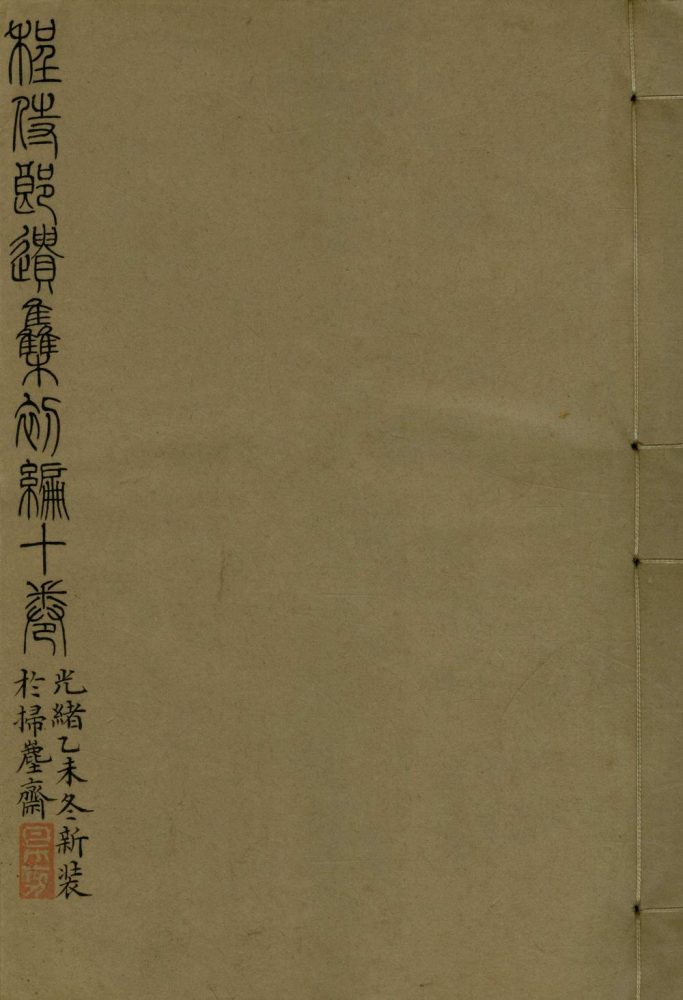 程侍郎遺集初編十卷
光緒乙未冬新装
於掃塵齋